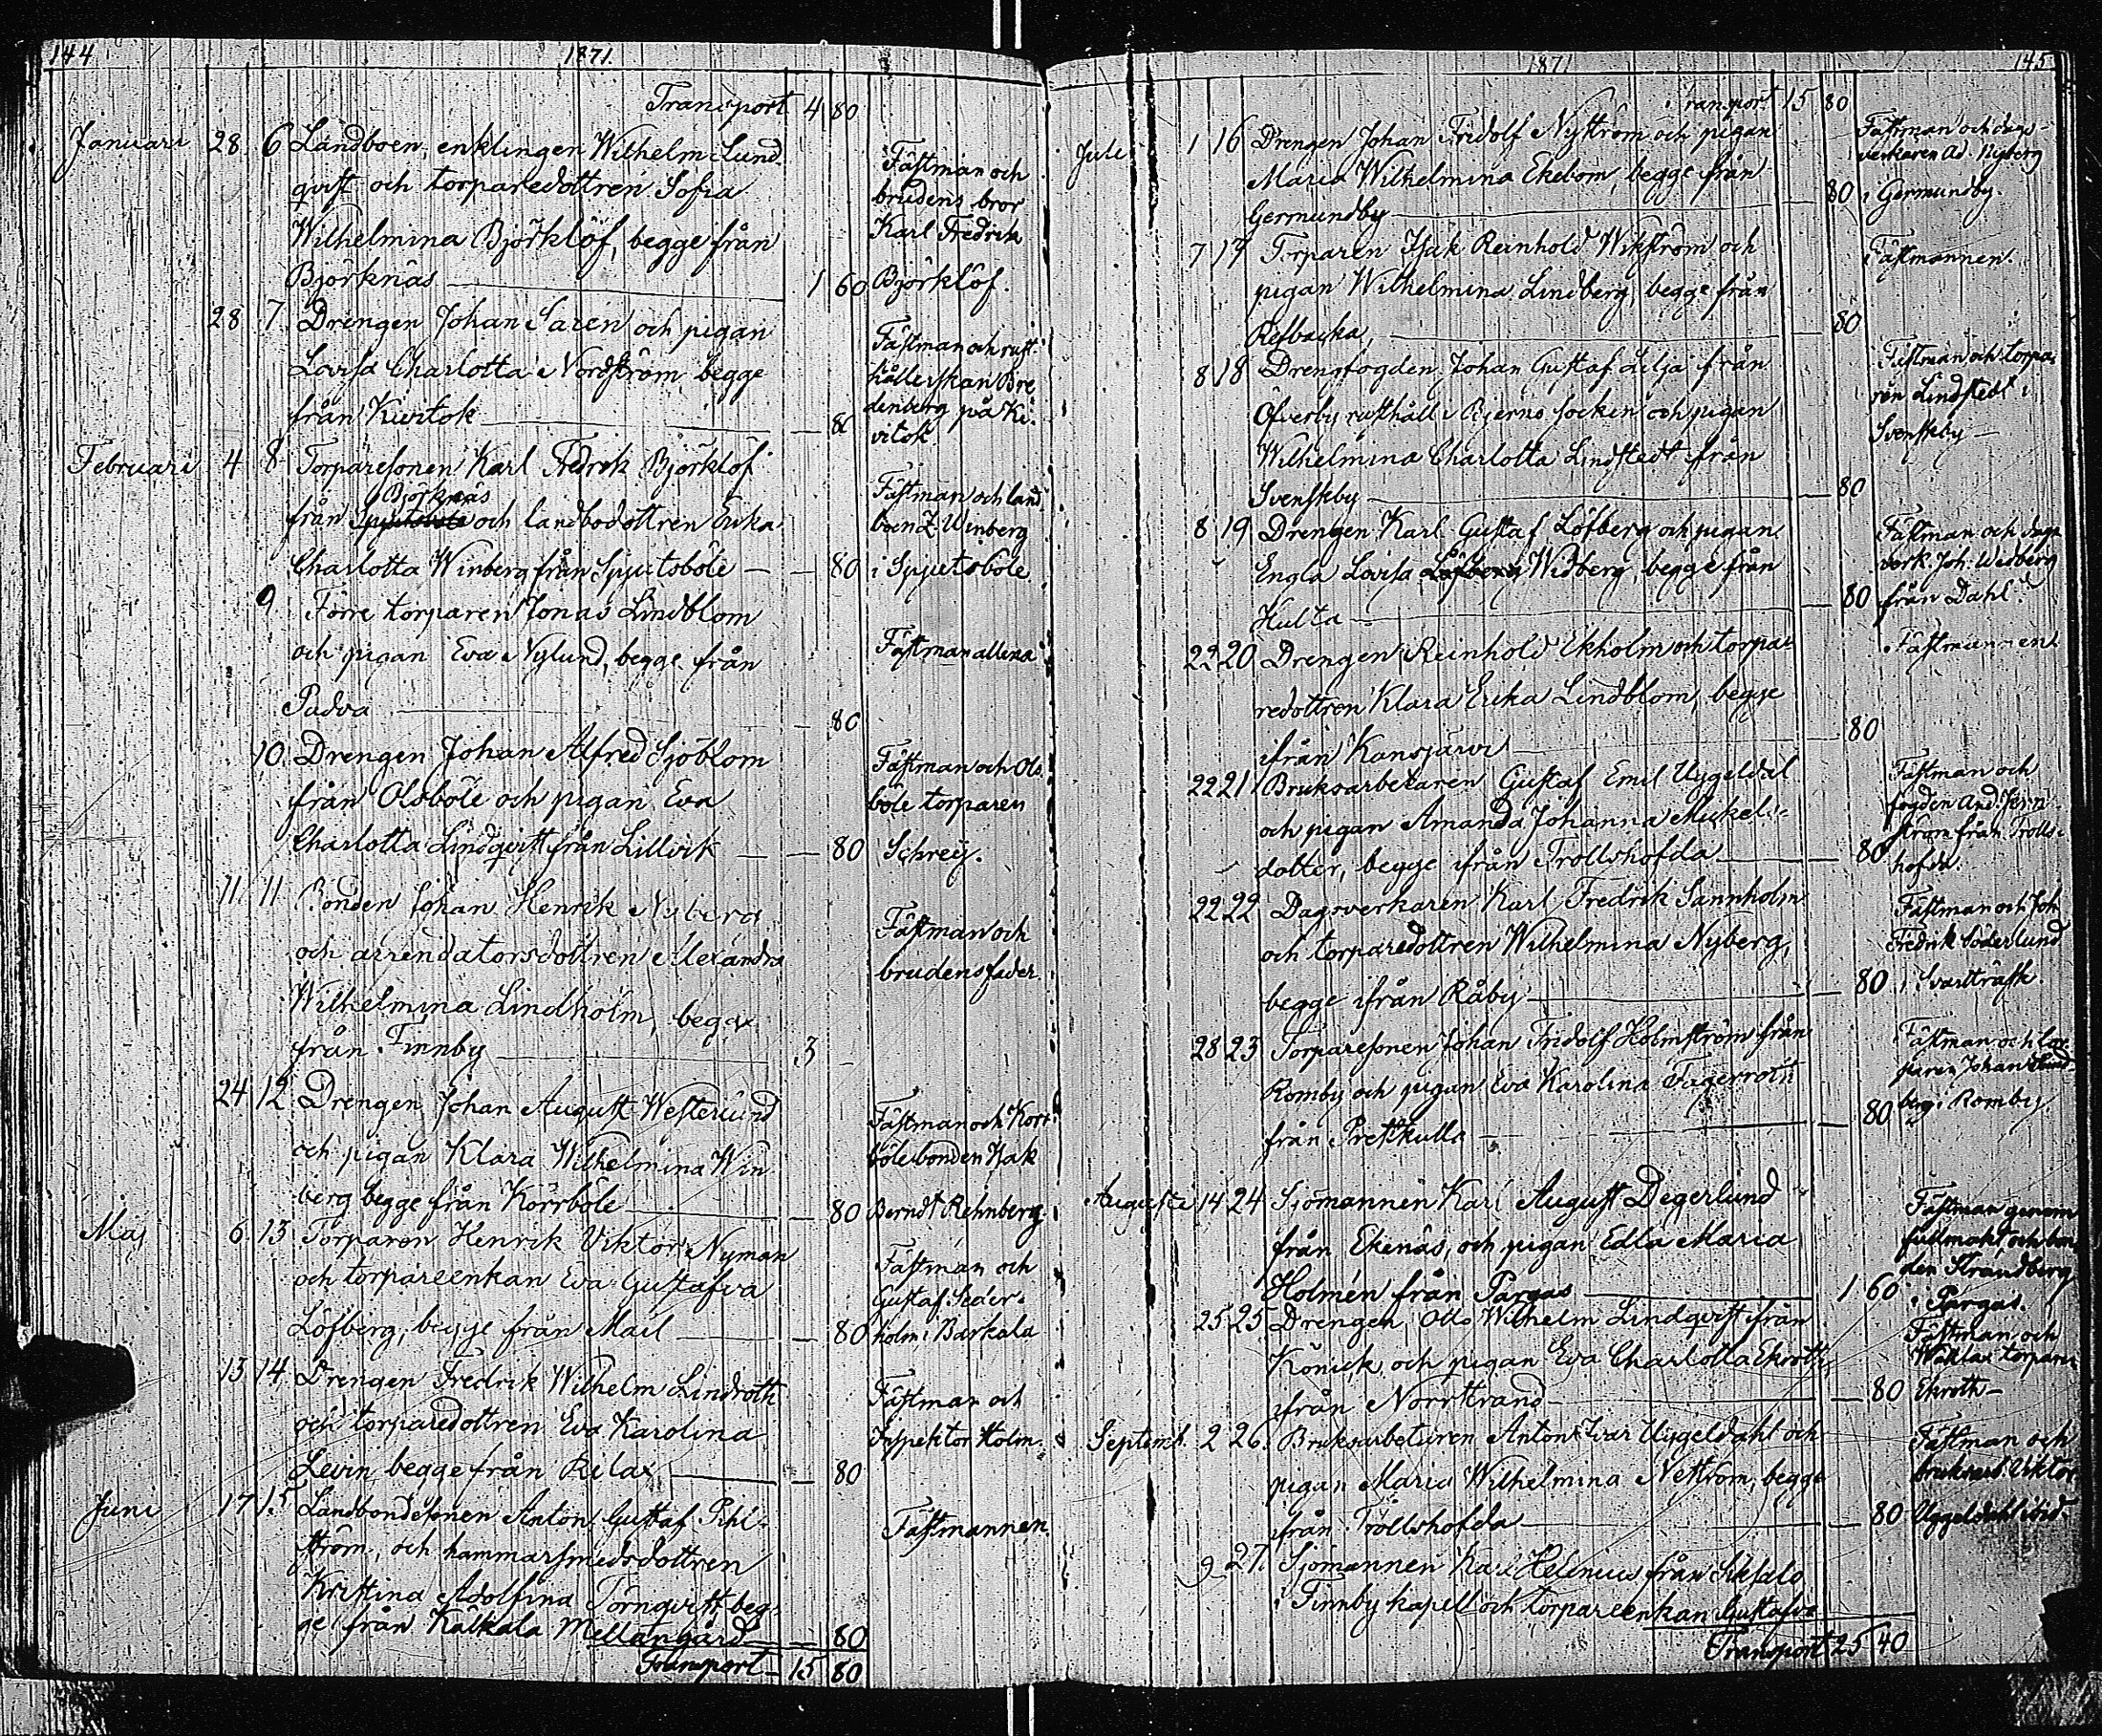 144
1871
Transport 4 80
Januari 28 6 Landboen, enklingen Wilhelm Lund-
qvist och torparedottren Sofia
Wilhelmina Björklöf, begge från
Björknäs 1 60
Fästman och
brudens bror
Karl Fredrik
Björklöf.
28 7 Drengen Johan Sarén och pigan
Lovisa Charlotta Nordström begge
från Kivitok 80
Fästman och rust-
hållerskan Bre
denberg på Ki-
vitok
Februari 4 8 Torparesonen Karl Fredrik Björklöf
Björknäs
från Spjutsböle och landbodottren Erika
Charlotta Winberg från Spjutsböle 80
Fästman och land
boen Z. Winberg
i Spjutsböle
9 Förre torparen Jonas Lindblom
och pigan Eva Nylund, begge från
Padva 80
Fästman allena
10 Drengen Johan Alfred Sjöblom
från Olsböle och pigan Eva
Charlotta Lindqvist från Lillvik 80
Fästman och Ols
böle torparen
Schrey.
11 11 Bonden Johan Henrik Nyberg
och arrendatorsdottren Alexandra
Wilhelmina Lindholm, begge
från Finnby 3 -
Fästman och
brudens fader.
24 12 Drengen Johan August Westerlund
och pigan Klara Wilhelmina Win
berg begge från Korrböle 80
Fästman och Korr-
bölebonden Isak
Berndt Rehnberg
Maj 6 13 Torparen Henrik Viktor Nyman
och torpareenkan Eva Gustafva
Löfberg, begge från Mail 80
Fästman och
Gustaf Söder-
holm i Barkala
13 14 Drengen Fredrik Wilhelm Lindroth
och torparedottren Eva Karolina
Levin begge från Rilax 80
Fästman och
Inspektor Holm.
Juni 17 15 Landbondesonen Anton Gustaf Pihl-
ström, och hammarsmedsdottren
Kristina Adolfina Törnqvist, beg-
ge från Kälkala Mellangård 80
Fästmannen
Transport 15 80
1871
145
Transport 15 80
Juli 1 16 Drengen Johan Fridolf Nyström och pigan
Maria Wilhelmina Ekebom, begge från
Germundby 80
Fästman och dags-
verkaren Ad. Nyberg
i Germundby.
7 17 Torparen Isak Reinhold Wikström och
pigan Wilhelmina Lindberg, begge från
Refbacka, 80
Fästmannen.
8 18 Drengfogden Johan Gustaf Lilja från
Öfverby rusthåll i Bjerno socken och pigan
Wilhelmina Charlotta Lindstedt från
Svenskby 80
Fästman och torpa-
ren Lindstedt i
Svenskby
8 19 Drengen Karl Gustaf Löfberg och pigan
Engla Lovisa Löfberg Widberg, begge från
Hulta 80
Fästman och dags
verk. Joh. Widberg
från Dahl.
22 20 Drengen Reinhold Ekholm och torpa-
redottren Klara Erika Lindblom, begge
ifrån Kansjärvi 80
Fästmannen
22 21 Bruksarbetaren Gustaf Emil Uggeldal
och pigan Amanda Johanna Mickels-
dotter, begge ifrån Trollshofda 80
Fästman och
fogden And. Jern
ström från Trolls-
hofda.
22 22 Dagsverkaren Karl Fredrik Sannholm
och torparedottren Wilhelmina Nyberg,
begge ifrån Råby 80
Fästman och Joh.
Fredrik Söderlund
i Svartträsk.
28 23 Torparesonen Johan Fridolf Holmström från
Romby och pigan Eva Karolina Fagerroth
från Prestkulla 80
Fästman och tor-
paren Johan Lind
berg i Romby
Augusti 14 24 Sjömannen Karl August Degerlund
från Ekenäs, och pigan Edla Maria
Holmén från Pargas 1 60
Fästman genom
fullmakt och bon-
den Strandberg
i Pargas.
25 25 Drengen Otto Wilhelm Lindqvist ifrån
Könick och pigan Eva Charlotta Ekroth
ifrån Norrstrand 80
Fästman och
torparen
Ekroth
Septemb. 2 26. Bruksarbetaren Anton Ivar Uggeldahl och
pigan Maria Wilhelmina Neström, begge
ifrån Trollshofda 80
Fästman och
bruksarb. Viktor
Uggeldahl ibid.
9 27. Sjömannen Karl Helenius från Sikfalo
i Finnby kapell och torpareenkan Gustafva
Transport 25 40